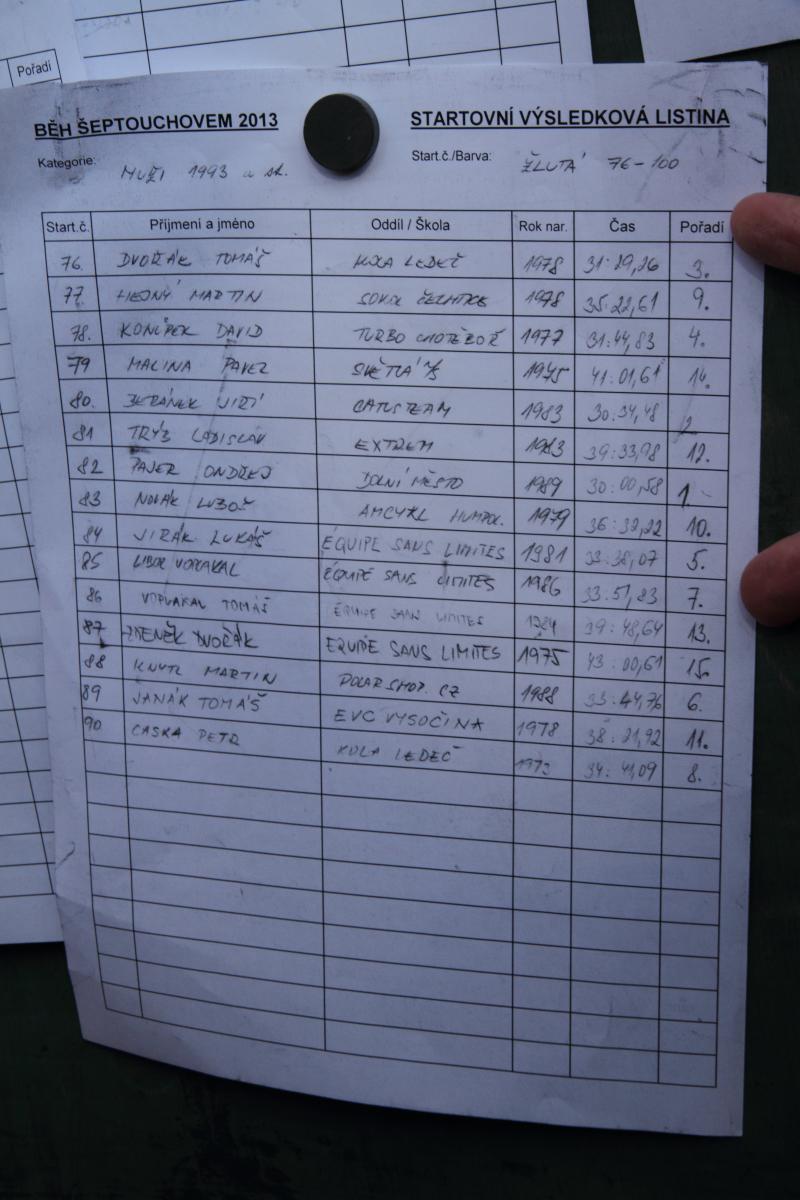 Pořadí
BĚH ŠEPTOUCHOVEM 2013 STARTOVNÍ VÝSLEDKOVÁ LISTINA
Kategorie: MUŽI 1993 a st. Start.č./Barva: ŽLUTÁ 76-100
Start.č. Příjmení a jméno Oddíl / Škola Rok nar. Čas Pořadí
76. DVOŘÁK TOMÁŠ KOLA LEDEČ 1978 31:29,26 3.
77. HEJNÝ MARTIN SOKOL 1978 35:22,61 9.
78. KONŮPEK DAVID TURBO CHOTĚBOŘ 1977 31:44,83 4.
79 MALINA PAVEL SVĚTLÁ n/S 1975 41:01,61 14.
80. BERÁNEK JIŘÍ CATUSTEAM 1983 30:34,48 2
81 TRÝB LADISLAV EXTREM 1983 39:33,98 12.
82 PAJER ONDŘEJ DOLNÍ MĚSTO 1989 30:00,58 1.
83 NOVÁK LUBOŠ AMCYKL HUMPOL. 1979 36:32,22 10.
84 JIRÁK LUKÁŠ ÉQUIPE SANS LIMITES 1981 33:38,07 5.
85 LIBOR VOPLAKAL ÉQUIPE SANS LIMITES 1986 33:51,83 7.
86 VOPLAKAL TOMÁŠ ÉQUIPE SANS LIMITES 1984 39:48,64 13.
87 ZDENĚK DVOŘÁK EQUIPE SANS LIMITES 1975 43:00,61 15.
88 KNYTL MARTIN POLARSHOP.CZ 1988 33:44,76 6.
89 JANÁK TOMÁŠ EVC VYSOČINA 1978 38:21,92 11.
90 CÁSKA PETR KOLA LEDEČ 1973 34:41,09 8.